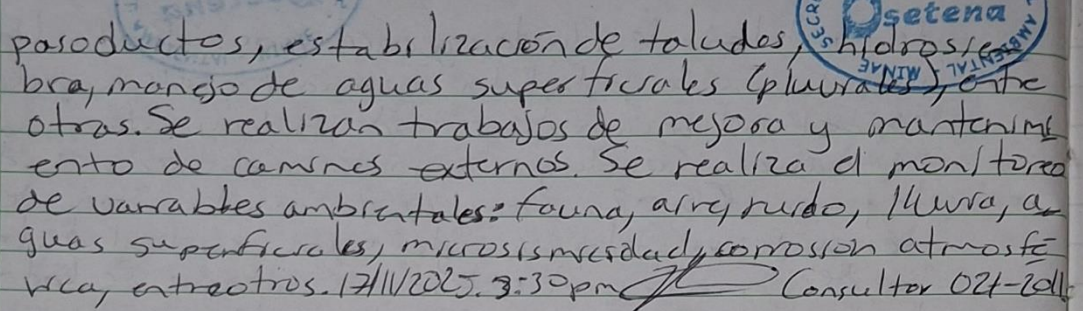 SECR
setena
AMBIENTAL
MINAE
pasoductos, estabilización de taludes, hidrosiem
bra, manejo de aguas superficiales (pluviales), entre
otras. Se realizan trabajos de mejora y mantenimi
ento de caminos externos. Se realiza el monitoreo
de variables ambientales: fauna, aire, ruido, lluvia, a_
guas superficiales, microsismicidad, corrosión atmosfé
rica, entre otros. 17/11/2025. 3:30pm Consultor 021-2011